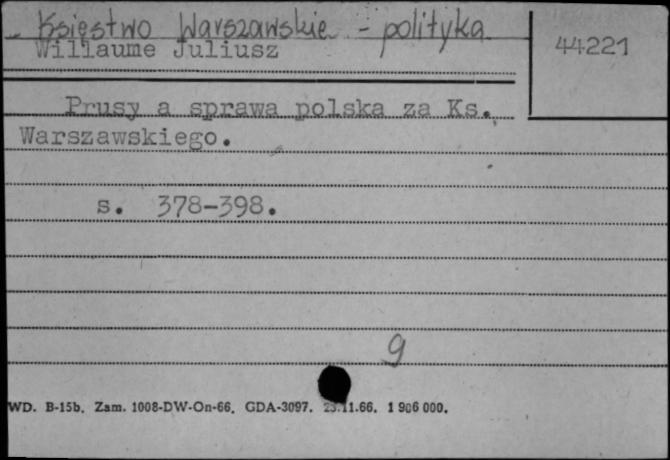 Księstwo Warszawskie - polityka
44221
Willaume Juliusz
Prusy a sprawa polska za Ks.
Warszawskiego.
s. 378-398.
9
WD. B-15b. Zam. 1008-DW-On-66. GDA-3097. 23.11.66. 1 906 000.